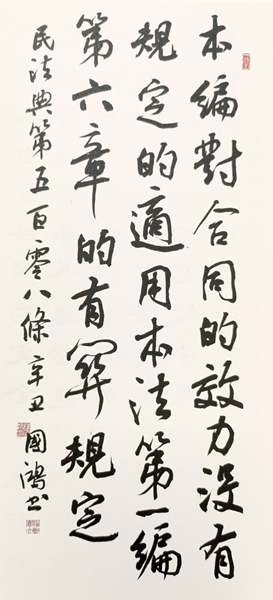 本編對合同的效力没有
規定的適用本法第一編
第六章的有關規定
民法典第五百零八條辛丑國鴻书